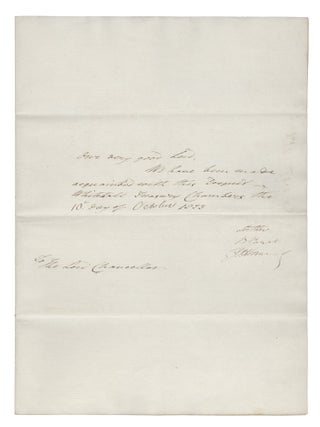 Our very good Lord,
We have been made
acquainted with this Docquet
Whitehall Treasury Chambers the
15th day of October 1833
To
The Lord Chancellor